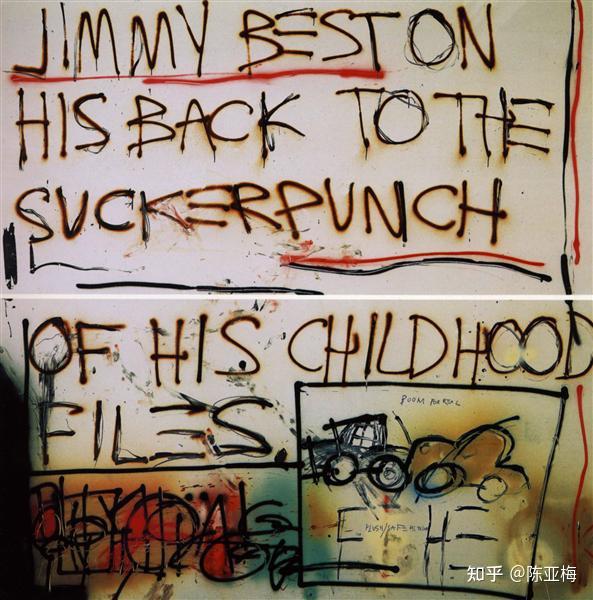 JIMMY BEST ON
HIS BACK TO THE
SUCKERPUNCH
OF HIS CHILDHOOD
FILES
BOOM FOR REAL
PLUSH/SAFE HE THINK
知乎 @陈亚梅